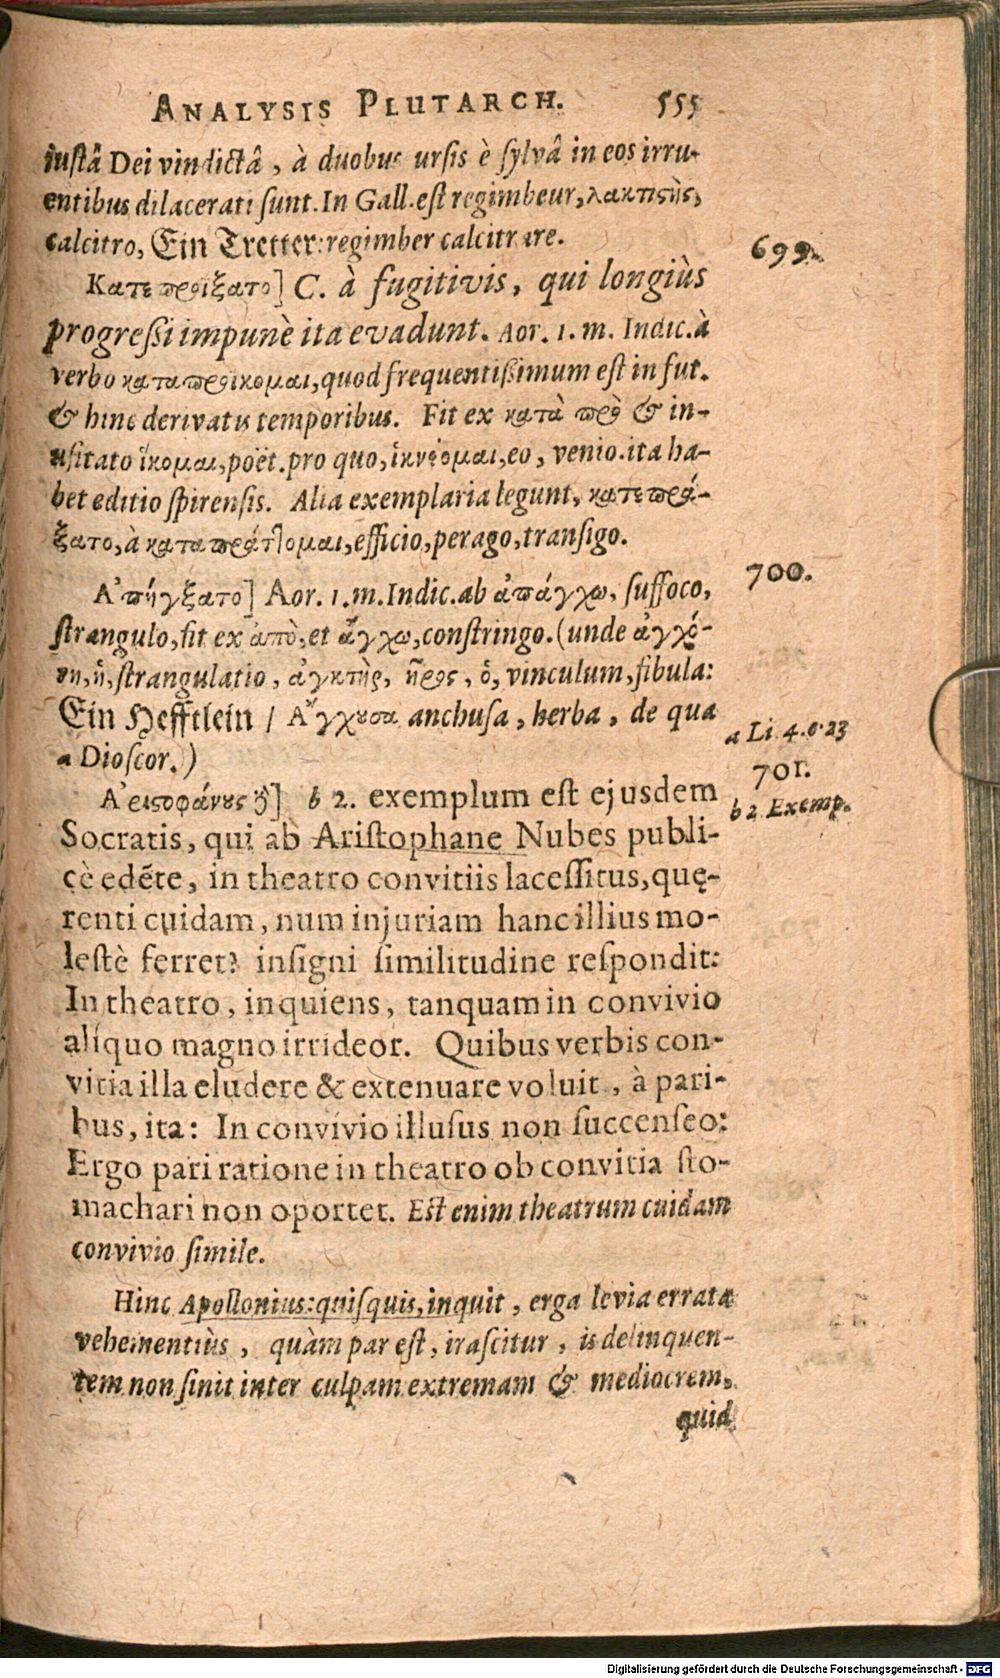 ANALYSIS PLUTARCH. 555
iustâ Dei vindictâ, à duobus ursis è sylvâ in eos irru-
entibus dilacerati sunt. In Gall. est regimbeur, λακτιςὴς,
calcitro, Ein Tretter: regimber calcitrare.
699.
Κατεπροΐξατο] C. à fugitivis, qui longiùs
progressi impunè ita evadunt. Aor. 1. m. Indic. à
verbo καταπροίκομαι, quod frequentissimum est in fut.
& hinc derivatis temporibus. Fit ex κατὰ πρὸ & in-
usitato ἵκομαι, poët. pro quo, ἱκνέομαι, eo, venio. ita ha-
bet editio spirensis. Alia exemplaria legunt, κατεπρά-
ξατο, à καταπράττομαι, efficio, perago, transigo.
700.
Ἀπήγξατο] Aor. 1. m. Indic. ab ἀπάγχω, suffoco,
strangulo, fit ex ἀπὸ, et ἄγχω, constringo. (unde ἀγχό-
νη, ἡ, strangulatio, ἀγκτὴρ, ῆρος, ὁ, vinculum, fibula:
Ein Hefftlein / Ἄγχυσα anchusa, herba, de qua
a Dioscor.)
a Li. 4. c. 23
701.
Ἀριςοφάνυς ὃ] b 2. exemplum est ejusdem
b 2 Exemp.
Socratis, qui ab Aristophane Nubes publi-
cè edēte, in theatro convitiis lacessitus, quę-
renti cuidam, num injuriam hanc illius mo-
lestè ferret? insigni similitudine respondit:
In theatro, inquiens, tanquam in convivio
aliquo magno irrideor. Quibus verbis con-
vitia illa eludere & extenuare voluit, à pari-
bus, ita: In convivio illusus non succenseo:
Ergo pari ratione in theatro ob convitia sto-
machari non oportet. Est enim theatrum cuidam
convivio simile.
Hinc Apollonius: quisquis, inquit, erga levia errata
vehementiùs, quàm par est, irascitur, is delinquen-
tem non sinit inter culpam extremam & mediocrem,
quid
Digitalisierung gefördert durch die Deutsche Forschungsgemeinschaft - DFG